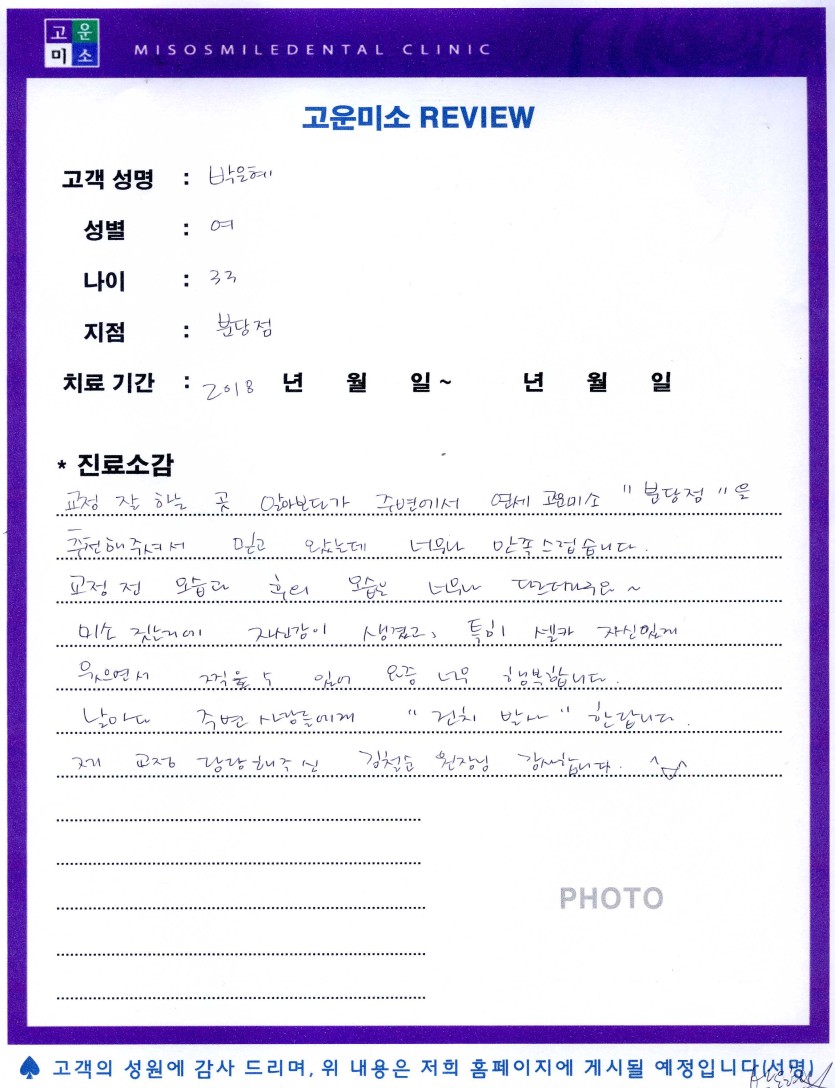 고운
미소
MISOSMILEDENTAL CLINIC
고운미소 REVIEW
고객 성명 : 박은혜
성별 : 여
나이 : 33
지점 : 분당점
치료 기간 : 2018 년 월 일 ~ 년 월 일
* 진료소감
교정 잘 하는 곳 알아보다가 주변에서 연세 고운미소 "분당점"을
추천해주셔서 믿고 왔는데 너무나 만족스럽습니다.
교정 전 모습과 후의 모습은 너무나 다르더라구요~
미소 짓는거에 자신감이 생겼고, 특히 셀카 자신있게
웃으면서 찍을 수 있어 요즘 너무 행복합니다.
날마다 주변 사람들에게 "건치 발사" 한답니다.
제 교정 담당해주신 원장님 감사합니다. ^^
PHOTO
고객의 성원에 감사 드리며, 위 내용은 저희 홈페이지에 게시될 예정입니다(서명)